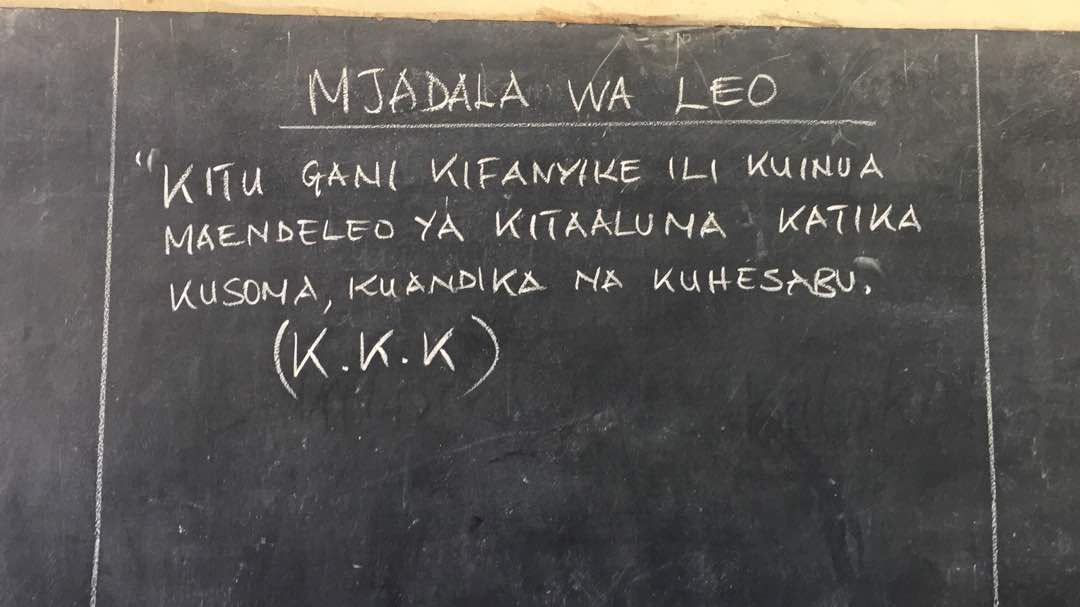 MJADALA WA LEO
"KITU GANI KIFANYIKE ILI KUINUA
MAENDELEO YA KITAALUMA KATIKA
KUSOMA, KUANDIKA NA KUHESABU.
(K.K.K)